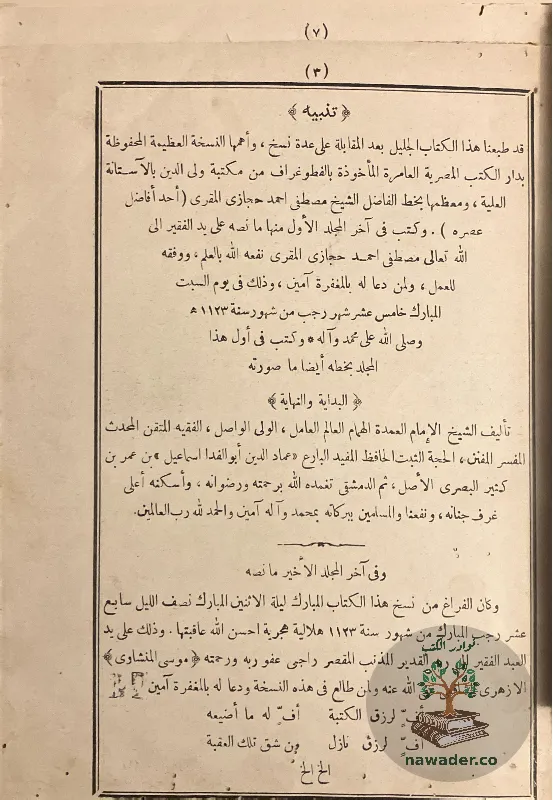 (٧)
(٣)
﴿ تنبيه ﴾
قد طبعنا هذا الكتاب الجليل بعد المقابلة على عدة نسخ ، وأهمها النسخة العظيمة المحفوظة
بدار الكتب المصرية العامرة المأخوذة بالفطوغراف من مكتبة ولى الدين بالآستانة
العلية ، ومعظمها بخط الفاضل الشيخ مصطفى احمد حجازى المقرى ( أحد أفاضل
عصره ) . وكتب فى آخر المجلد الأول منها ما نصه على يد الفقير الى
الله تعالى مصطفى احمد حجازى المقرى نفعه الله بالعلم ، ووفقه
للعمل ، ولمن دعا له بالمغفرة آمين ، وذلك فى يوم السبت
المبارك خامس عشر شهر رجب من شهور سنة ١١٢٣ هـ
وصلى الله على محمد وآله * وكتب فى أول هذا
المجلد بخطه أيضا ما صورته
﴿ البداية والنهاية ﴾
تأليف الشيخ الإمام العمدة الهمام العالم العامل ، الولى الواصل ، الفقيه المتقن المحدث
المفسر المفنن ، الحجة الثبت الحافظ المفيد البارع «عماد الدين أبو الفدا اسماعيل » بن عمر بن
كثير البصرى الأصل ، ثم الدمشقى تغمده الله برحمته ورضوانه ، وأسكنه أعلى
غرف جنانه ، ونفعنا والمسلمين ببركاته بمحمد وآله آمين والحمد لله رب العالمين.
وفى آخر المجلد الأخير ما نصه
وكان الفراغ من نسخ هذا الكتاب المبارك ليلة الاثنين المبارك نصف الليل سابع
عشر رجب المبارك من شهور سنة ١١٢٣ هلالية هجرية احسن الله عاقبتها . وذلك على يد
العبد الفقير القدير المذنب المقصر راجى عفو ربه ورحمته ﴿ موسى المنشاوى ﴾
الازهرى الله عنه ولمن طالع فى هذه النسخة ودعا له بالمغفرة آمين
أفٍّ لرزق الكتبة أفٍّ له ما أضيعه
أفٍّ لرزق نازل من شق تلك القصبة
الخ الخ
نوادر الكتب
nawader.co